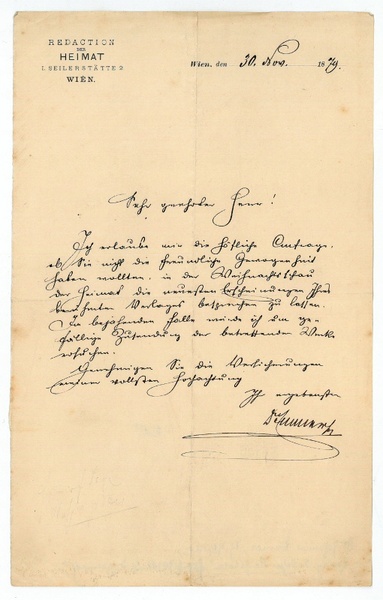 REDACTION
DER
HEIMAT
I. SEILERSTÄTTE 2
WIEN.
Wien, den 30. Nov. 1879.
Sehr geehrter Herr!
Ich erlaube mir die höfliche Anfrage,
ob Sie nicht die freundliche Gewogenheit
haben wollten, in der Weihnachtsschau
der Heimat die neuesten Erscheinungen Ihres
berühmten Verlages besprechen zu lassen.
Im bejahenden Falle würde ich um ge-
fällige Zusendung der betreffenden Werke
ersuchen.
Genehmigen Sie die Versicherungen
meiner vollsten Hochachtung
Ihr ergebenster